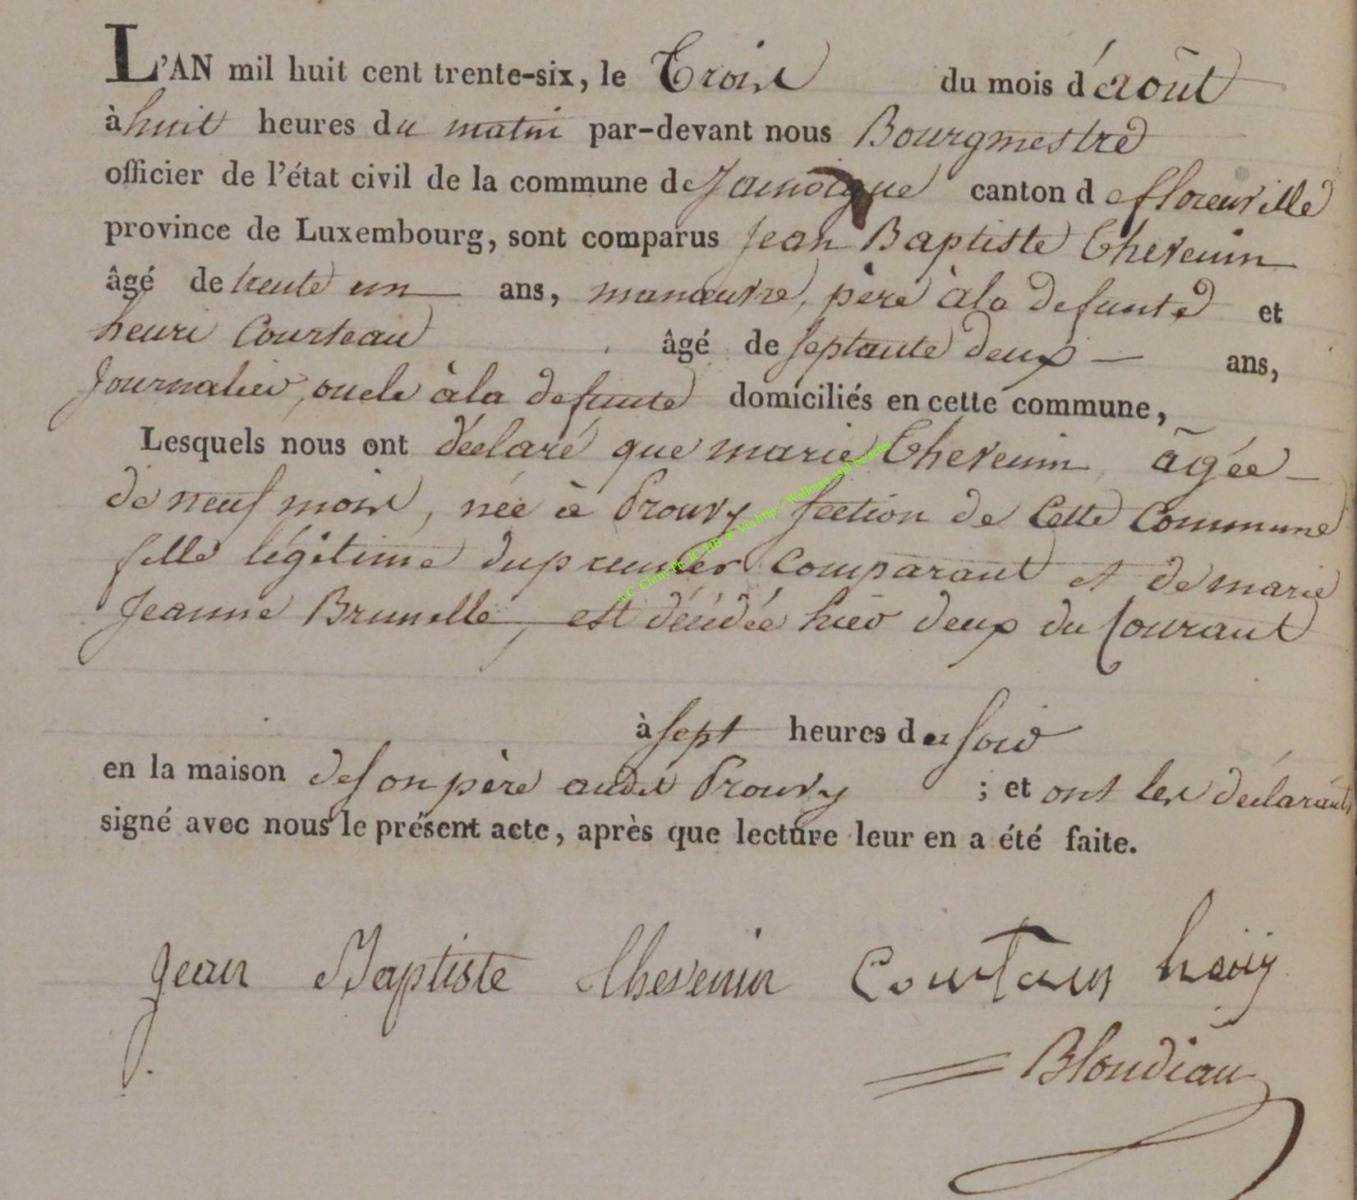 L'AN mil huit cent trente-six, le Trois du mois d'août
à huit heures du matin par-devant nous Bourgmestre
officier de l'état civil de la commune de Jamoigne canton de florenville
province de Luxembourg, sont comparus Jean Baptiste Thevenin
âgé de trente un ans, manœuvre, père à la defunte et
henri Courteau âgé de septante deux ans,
Journalier, oncle à la defunte domiciliés en cette commune,
Lesquels nous ont déclaré que marie Thevenin, âgée
de neuf mois, née à Prouvy section de Cette Commune
fille légitime du premier comparant et de marie
Jeanne Brunelle, est décédée hier deux du Courant
à sept heures du soir
en la maison de son père audit Prouvy ; et ont les déclarants
signé avec nous le présent acte, après que lecture leur en a été faite.
Jean Baptiste thevenin Courtaux
Blondiau